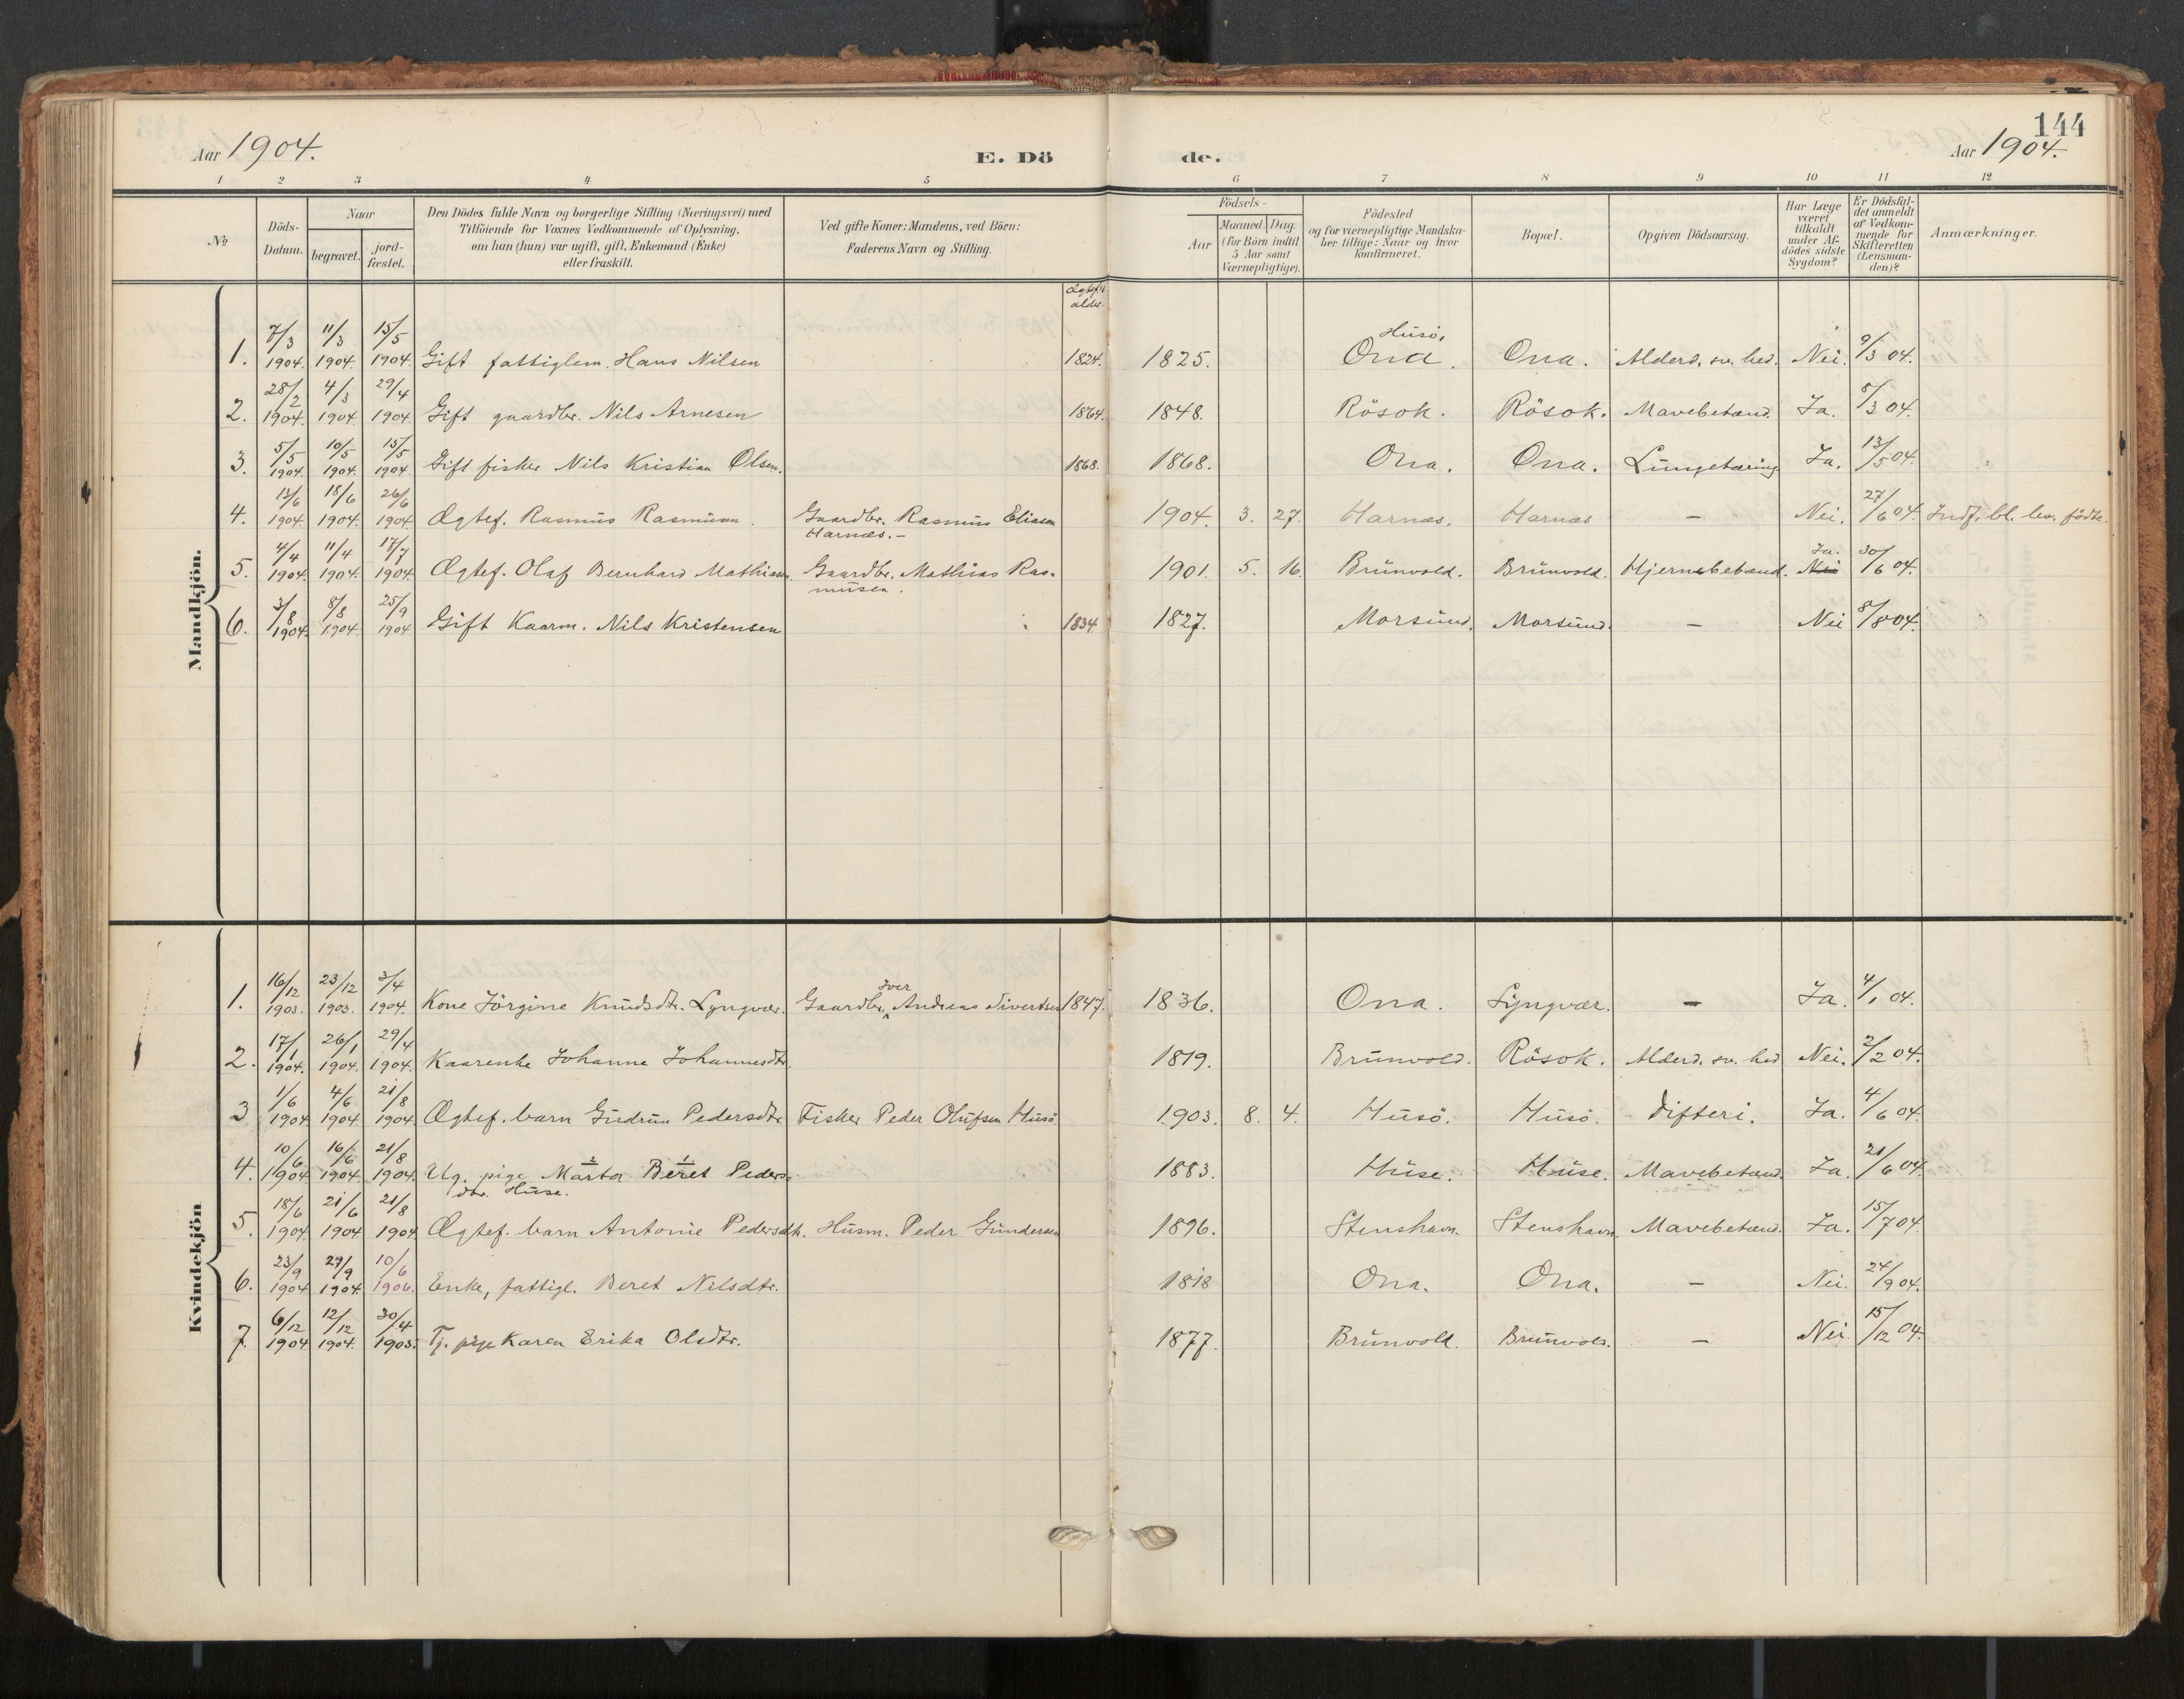 144
Aar 1904.
E. Dö de.
Aar 1904.
1 2 3 4 5 6 7 8 9 10 11 12
№
Döds-
Datum.
Naar
begravet.
jord-
fæstet.
Den Dödes fulde Navn og borgerlige Stilling (Næringsvei) med
Tilföiende for Voxnes Vedkommende af Oplysning,
om han (hun) var ugift, gift, Enkemand (Enke)
eller fraskilt.
Ved gifte Koner: Mandens, ved Börn:
Faderens Navn og Stilling.
Födsels-
Aar
Maaned.
Dag.
(for Börn indtil
5 Aar samt
Værnepligtige).
Födested
og for værnepligtige Mandska-
ber tillige: Naar og hvor
konfirmeret.
Bopæl.
Opgiven Dödsaarsag.
Har Læge
været
tilkaldt
under Af-
dödes sidste
Sygdom?
Er Dödsfal-
det anmeldt
af Vedkom-
mende for
Skifteretten
(Lensman-
den)?
Anmærkninger.
alder.
Mandkjön.
1. 7/3 1904. 11/3 1904. 15/5 1904. Gift fattiglem. Hans Nilsen 1824. 1825. Husö, Ona. Ona. Alderd. sv. hed. Nei. 9/3 04.
2. 28/2 1904. 4/3 1904 29/4 1904 Gift gaardbr. Nils Arnesen 1864. 1848. Rösok. Rösok. Mavebetænd. Ja. 8/3 04.
3. 5/5 1904. 10/5 1904. 15/5 1904. Gift fisker Nils Kristian Olsen. 1868. 1868. Ona. Ona. Lungetæring Ja. 13/5 04.
4. 13/6 1904. 18/6 1904. 26/6 1904 Ægtef. Rasmus Rasmusen. Gaardbr. Rasmus Eliasen 1904. 3. 27. Harnæs. Harnæs — Nei. 27/6 04. Indf. bl. lev. födte.
Harnæs. —
5. 4/4 1904. 11/4 1904. 17/7 1904. Ægtef. Olaf Bernhard Mathiasen. Gaardbr. Mathias Ras- 1901. 5. 16. Brünvold. Brünvold. Hjernebetænd. Nei Ja. 30/6 04.
musen.
6. 3/8 1904. 8/8 1904. 25/9 1904 Gift Kaarm. Nils Kristensen 1834 1827. Morsund. Morsund. — Nei 8/8 04.
Kvindekjön
1. 16/12 1903. 23/12 1903. 3/4 1904. Kone Jörgine Knudsdtr. Lyngvær. Gaardbr. Iver Andreas Sivertsen 1847. 1836. Ona. Lyngvær. — Ja. 4/1 04.
2. 17/1 1904. 26/1 1904. 29/4 1904. Kaarenke Johanne Johannesdtr. 1819. Brunvold. Rösok. Alderd. sv. hed Nei. 2/2 04.
3 1/6 1904 4/6 1904 21/8 1904 Ægtef. barn Gudrun Pedersdtr. Fisker Peder Olufsen Husö. 1903. 8. 4. Husö. Husö. Difteri. Ja. 4/6 04.
4. 10/6 1904 16/6 1904 21/8 1904. Ug. pige Marta 2 Beret 1 Peders- 1883. Huse. Huse. Mavebetænd. Ja. 21/6 04.
dtr. Huse.
5. 18/6 1904 21/6 1904 21/8 1904 Ægtef. barn Antonie Pedersdtr. Husm. Peder Gundersen 1896. Stenshavn. Stenshavn. Mavebetænd. Ja. 15/7 04.
6. 23/9 1904 27/9 1904 10/6 1906. Enke, fattigl. Beret Nilsdtr. 1818 Ona. Ona. — Nei. 24/9 04.
7. 6/12 1904 12/12 1904. 30/4 1905. Tj. pige Karen Erika Olsdtr. 1877. Brünvold. Brünvold. — Nei. 15/12 04.